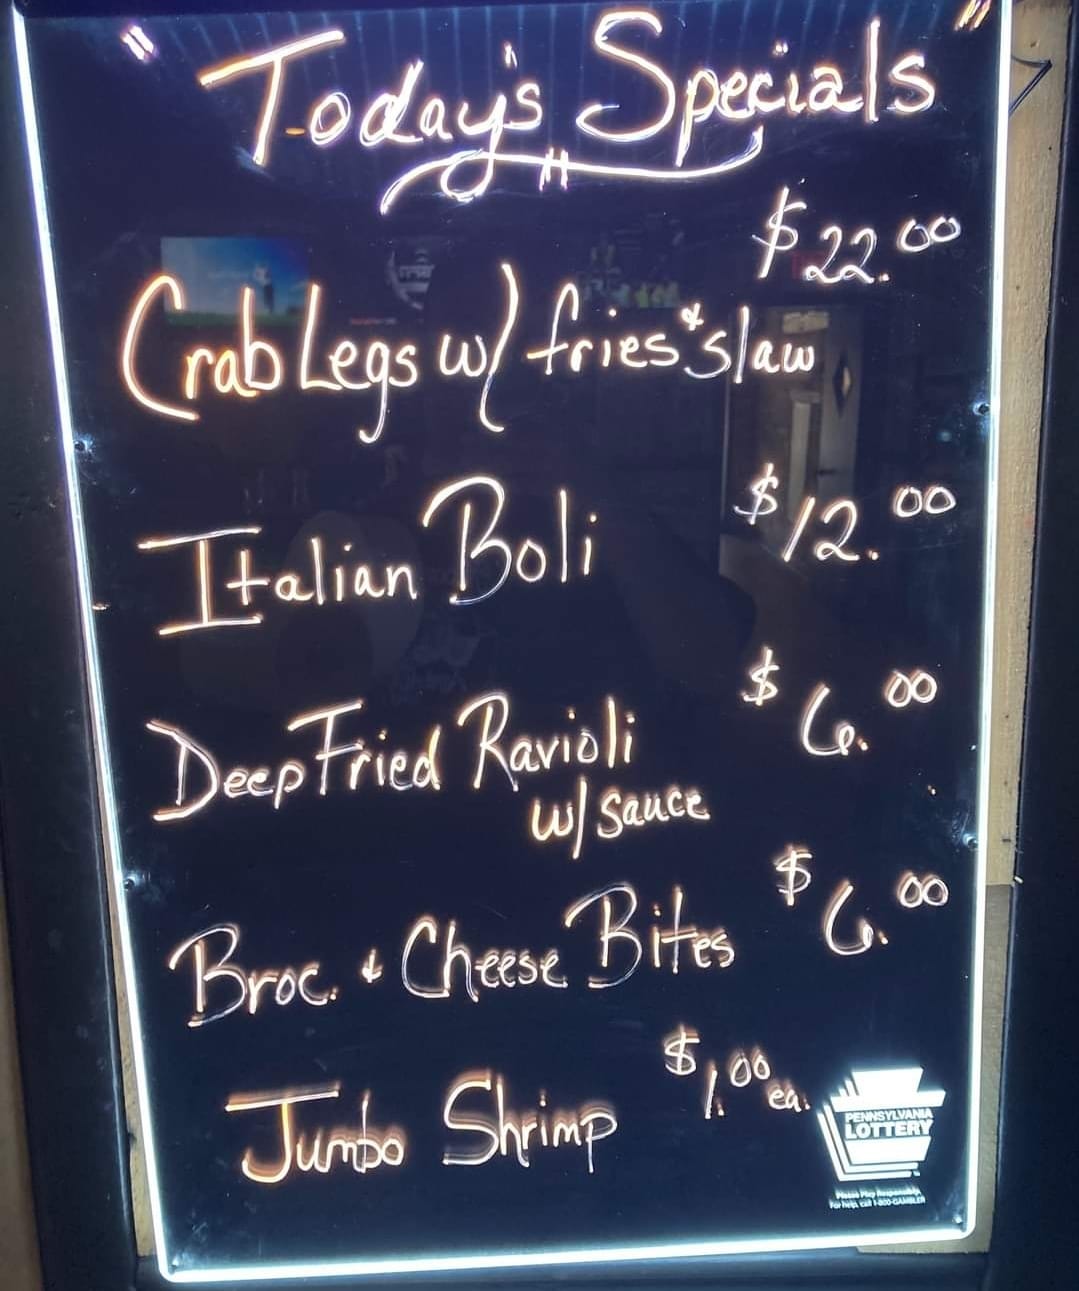 "Today's Specials"
$22.00
Crab Legs w/ fries & slaw
$12.00
Italian Boli
$6.00
Deep Fried Ravioli
w/ sauce
$6.00
Broc. & Cheese Bites
$1.00 ea.
Jumbo Shrimp
PENNSYLVANIA
LOTTERY
Please Play Responsibly.
For help, call 1-800-GAMBLER